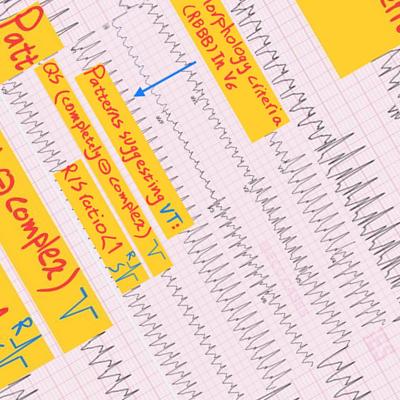 Morphology criteria
(RBBB) In V6
Patterns suggesting VT:
QS (completely ⊖ complex)
R/S ratio<1 R
S
Patt
⊖ complex)
R